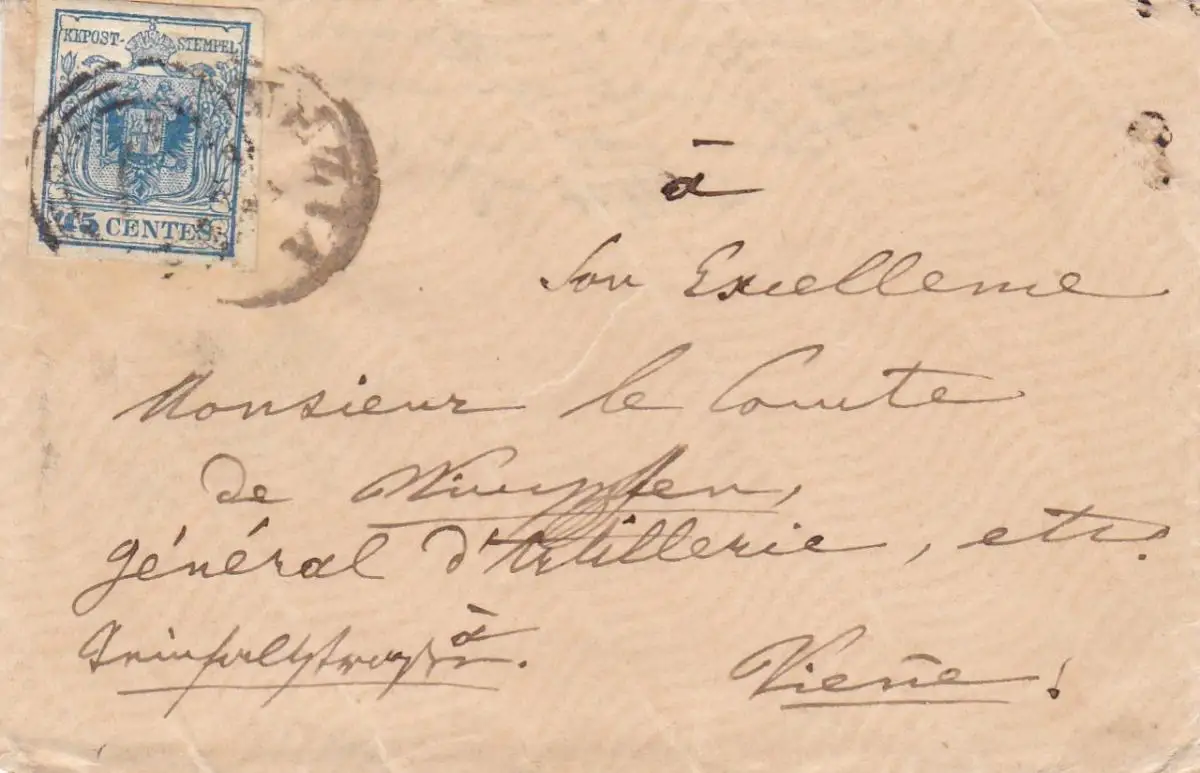 KKPOST-STEMPEL
45 CENTES.
VENEZIA
à
Son Excellence
Monsieur le Comte
de Wimpffen,
général d'Artillerie, etc.
à
Vienne!